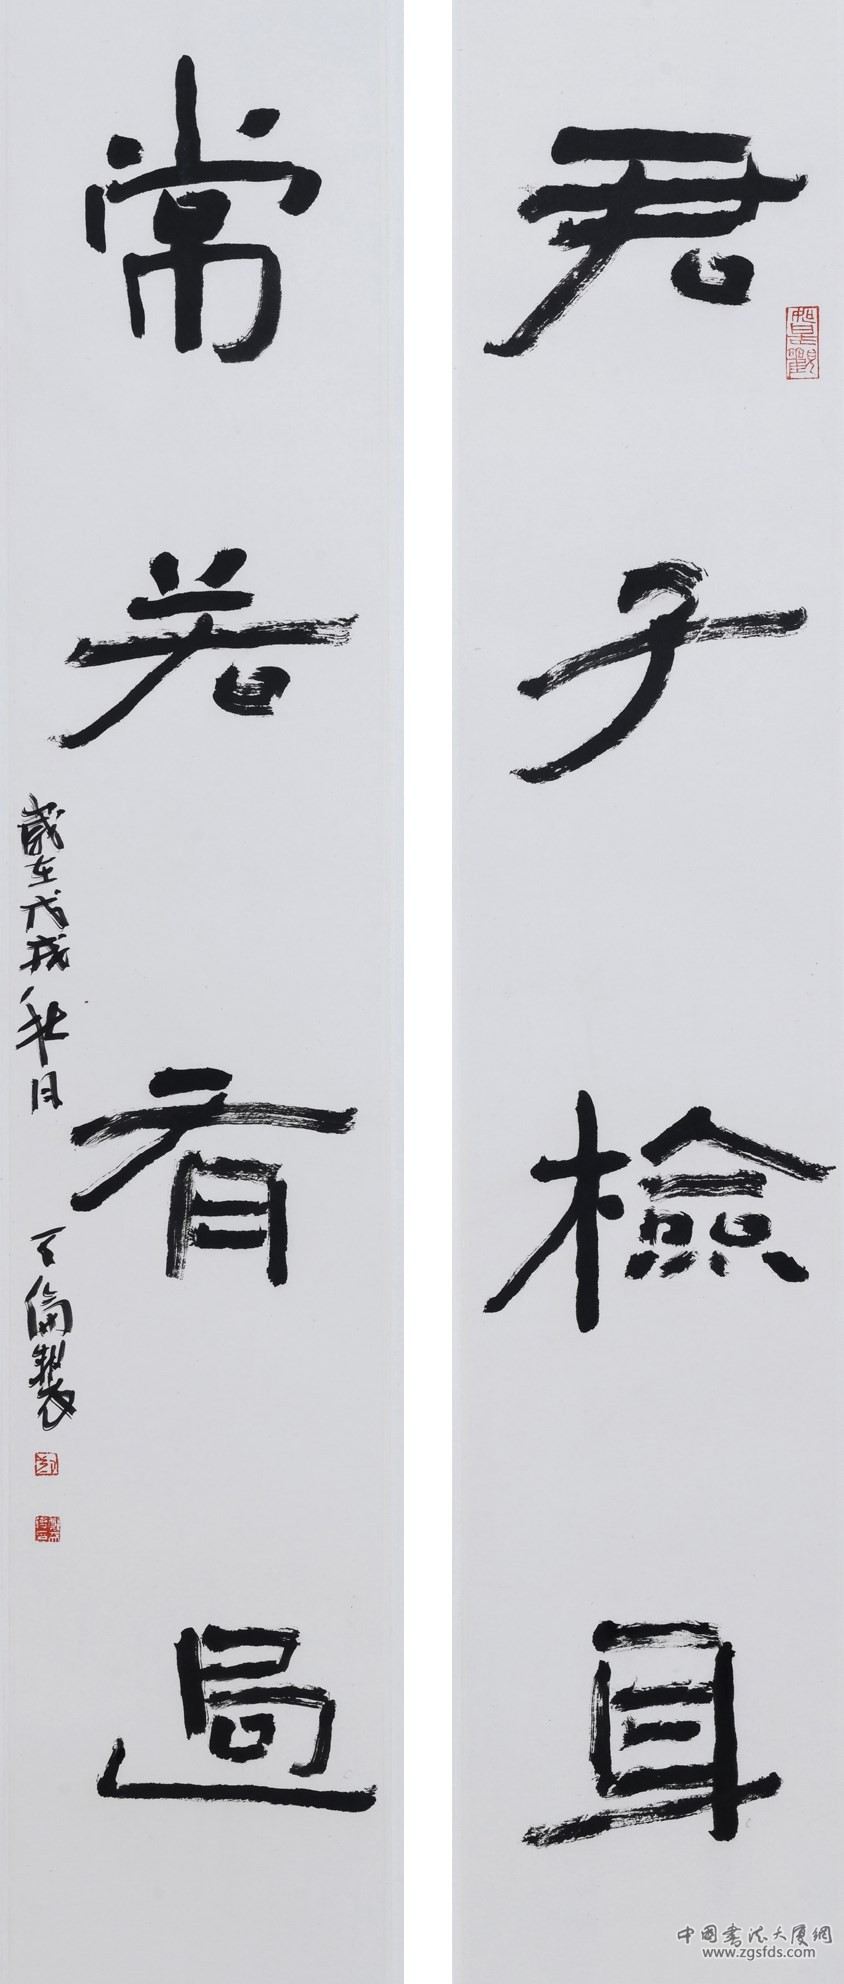 君子檢身
常若有過
歲在戊戌秋月
中国书法大厦网
www.zgsfds.com